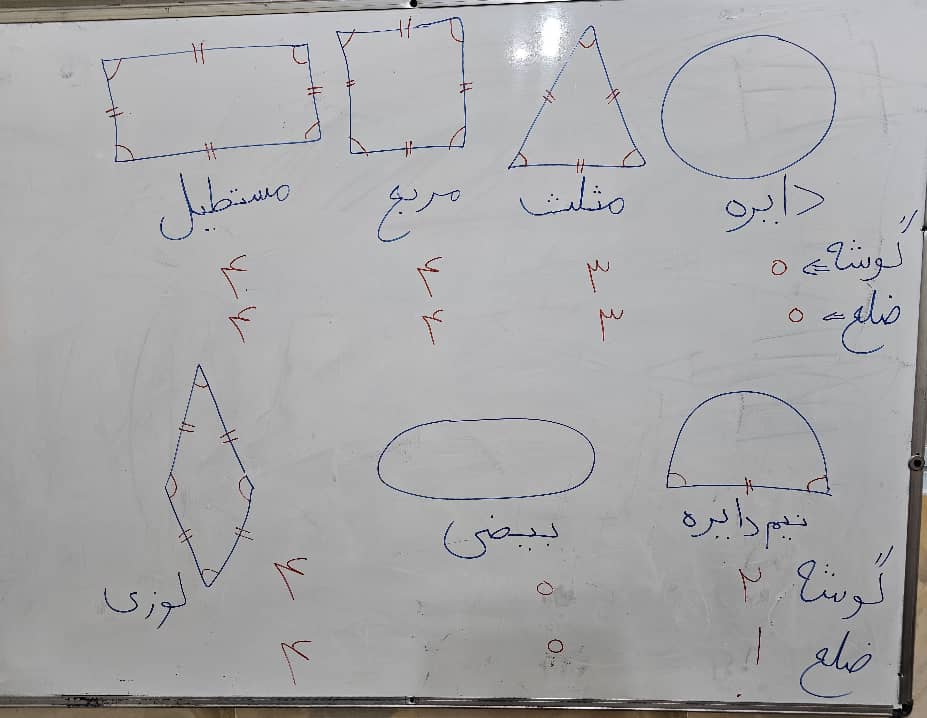 دایره مثلث مربع مستطیل
گوشه => ۰ ۳ ۴ ۴
ضلع => ۰ ۳ ۴ ۴
نیم دایره بیضی لوزی
گوشه ۲ ۰ ۴
ضلع ۱ ۰ ۴